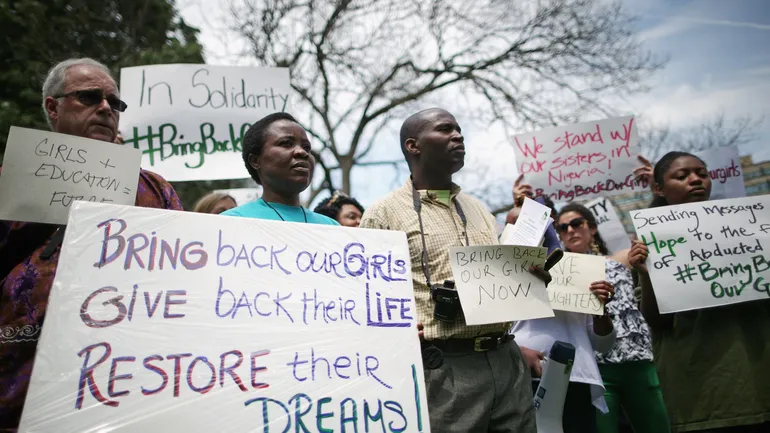 In Solidarity
#BringBack
GIRLS +
EDUCATION =
BRING BACK OUR GIRLS
GIVE BACK THEIR LIFE
RESTORE their
DREAMS!
BRING BACK
OUR GIR
NOW
GIVE
OUR
UGHTERS
We Stand w/
our sisters, in
Nigeria
#BringBackOurGi
urgirls
Sending Messages
Hope to the f
of Abducted
#BringBa
Our G